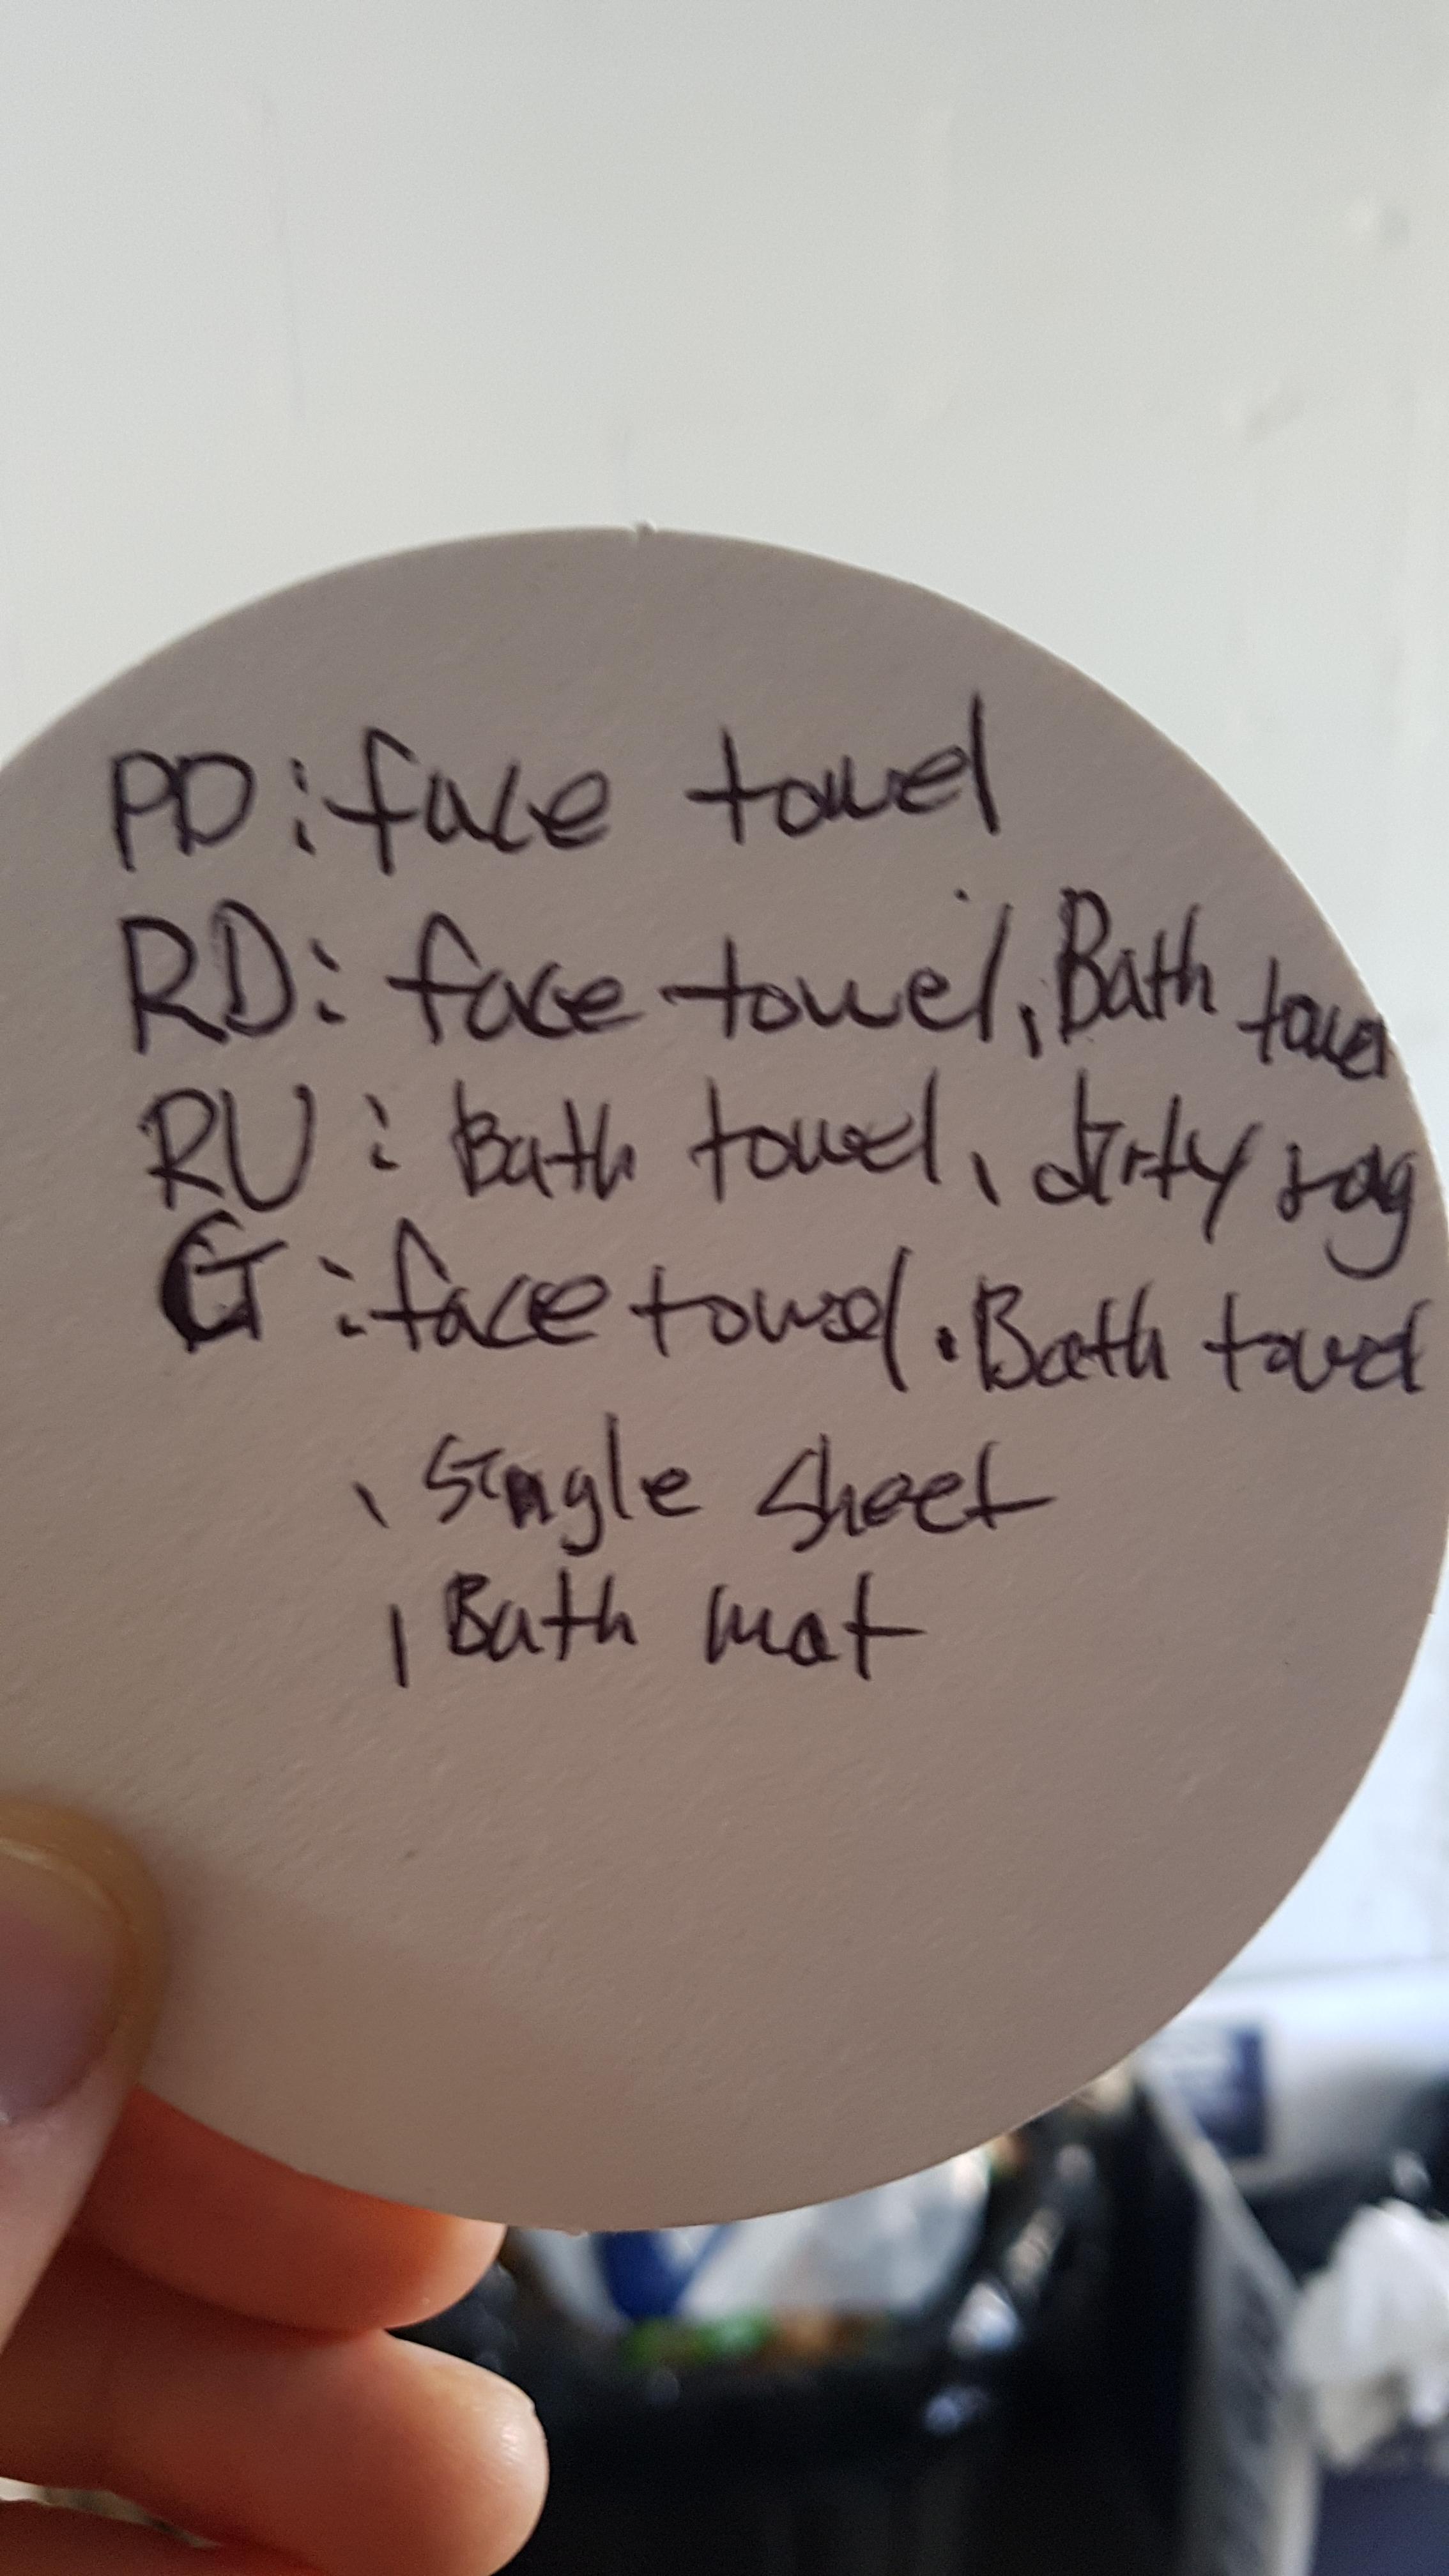 PD : face towel
RD : face towel, Bath towel
RU : Bath towel, dirty rag
G : face towel . Bath towel
, Single sheet
, Bath mat